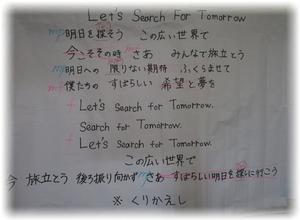 Let's Search For Tomorrow
mp 明日を探そう この広い世界で
今こそその時 さあ みんなで旅立とう
mp 明日への 限りない期待 ふくらませて
僕たちの すばらしい 希望と夢を
f Let's Search for Tomorrow.
Search for Tomorrow.
f Let's Search for Tomorrow.
この広い世界で
今 旅立とう 後ろ振り向かず さあ すばらしい明日を探しに行こう
※ くりかえし